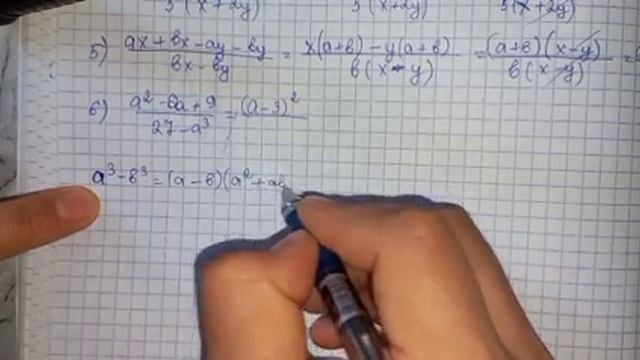 3(x+2y) 3(x+2y) 3(x+2y)
5) (ax+bx-ay-by)/(bx-by) = (x(a+b)-y(a+b))/(b(x-y)) = ((a+b)(x-y))/(b(x-y)) =
6) (a²-6a+9)/(27-a³) = (a-3)²
a³-b³=(a-b)(a²+ab